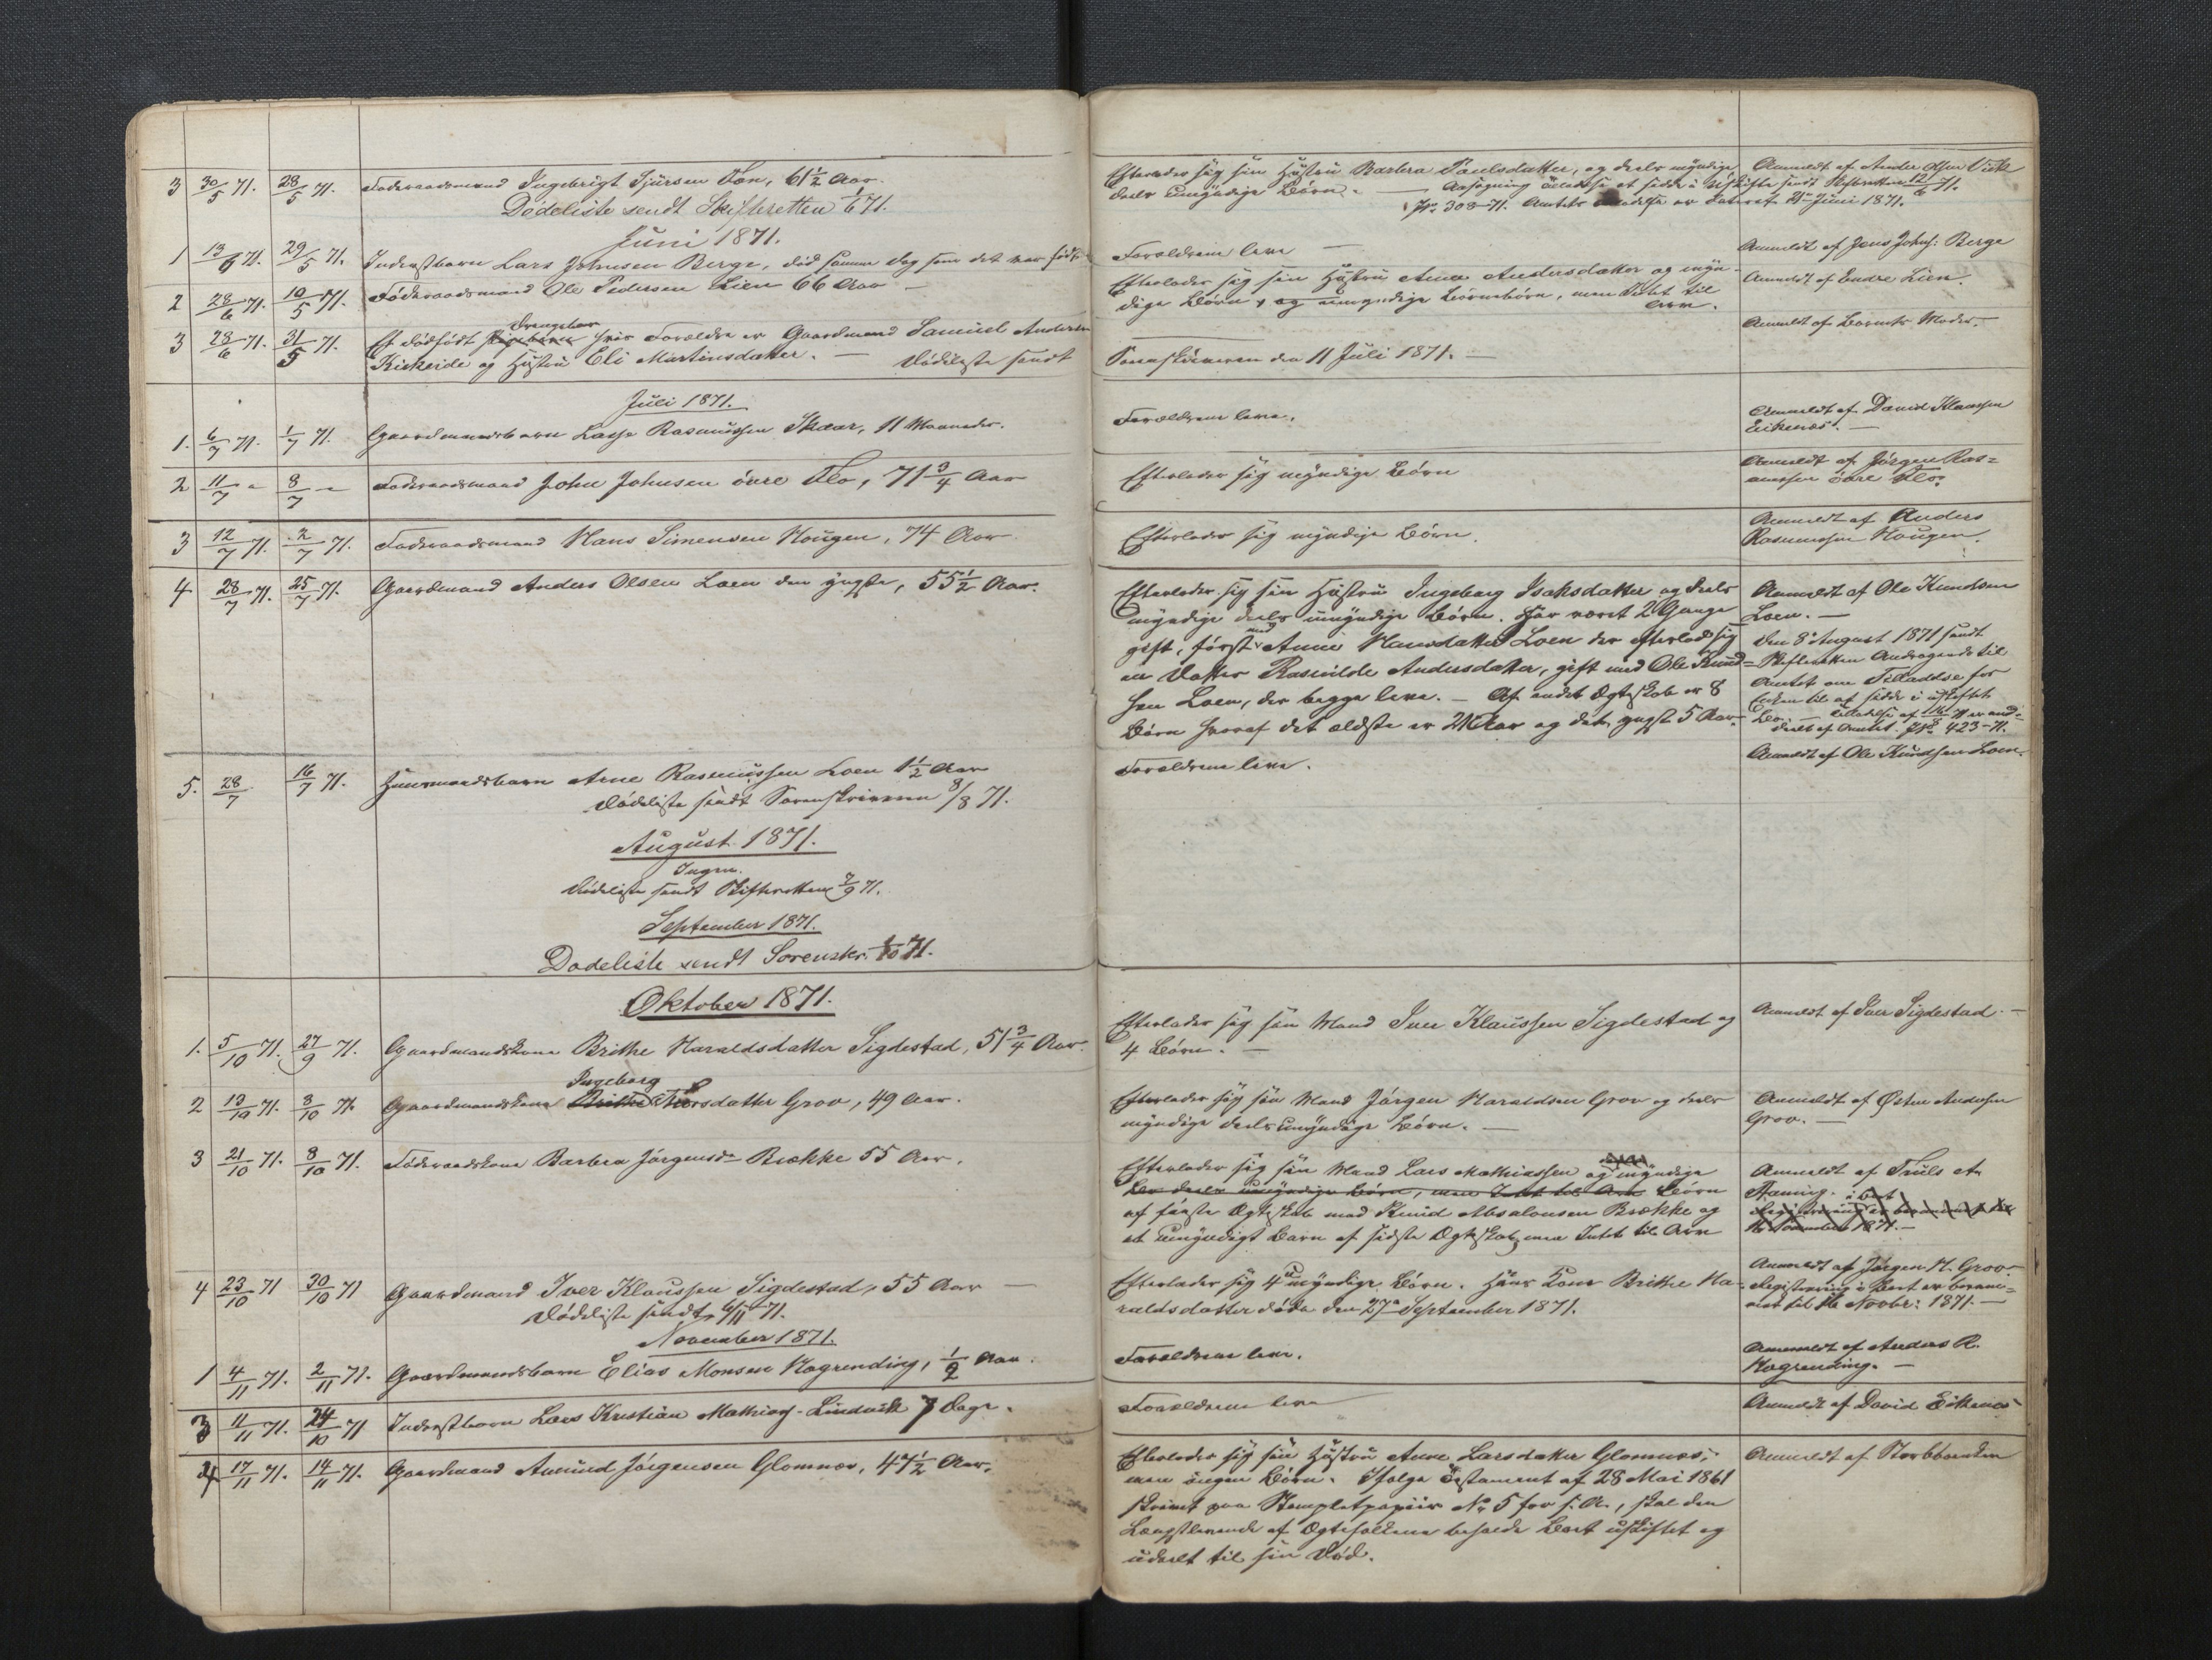 3 30/5 71. 28/5 71. Foderaadsmand Ingebrigt Sjursen Ton, 61½ Aar.
Dödeliste sendt Skifteretten 1/6 71.
Efterlader sig sin Hustru Barbra Paulsdatter, og deels myndige
deels umyndige Børn. — Ansøgning Tilladelse at sidde i Uskifte sendt Skifteretten 12/6 71.
Jr. 308-71. Amtets Tilladelse er dateret 21 Juni 1871.
Anmeldt af Anders Olsen
Juni 1871.
1 13/6 71. 29/5 71. Inderstbarn Lars Johnsen Berge, död samme Dag som det var födt.
Forældrene leve —
Anmeldt af Jens Johns: Berge
2 28/6 71. 10/5 71. Föderaadsmand Ole Pedersen Lien 66 Aar —
Efterlader sig sin Hustru Anna Andersdatter og myn-
dige Børn, og umyndige Børnebørn, men Intet til
Arv.
Anmeldt af Endre Lien.
3 28/6 71. 31/5 71. Et dödfödt Drengebarn hvis Forældre er Gaardmand Samuel Andersen
Kirkeide og Hustru Eli Martinsdatter. — Dödeliste sendt
Sorenskriveren den 11 Juli 1871. —
Anmeldt af Barnets Moder. —
Juli 1871.
1. 6/7 71. 1/7 71. Gaardmandsbarn Lasse Rasmussen Skaar, 11 Maaneder.
Forældrene leve.
Anmeldt af David Klaussen
Eikenæs. —
2 11/7 - 8/7 - Foderaadsmand John Johnsen övre Flo, 71¾ Aar
Efterlader sig myndige Børn
Anmeldt af Jörgen Ras=
mussen övre Flo.
3 12/7 71. 2/7 71. Foderaadsmand Hans Simensen Hougen, 74 Aar
Efterlader sig myndige Børn.
Anmeldt af Anders
Rasmussen Hougen.
4 28/7 71. 25/7 71. Gaardmand Anders Olsen Loen den yngste, 55½ Aar.
Efterlader sig sin Hustru Ingeborg Isaksdatter og deels
myndige deels umyndige Børn. Har været 2 Gange
gift, først med Anne Hansdatter Loen der efterlod sig
en Datter Rasmilde Andersdatter, gift med Ole Knud-
sen Loen, der begge leve. — Af andet Ægteskab er 8
Børn hvoraf det ældste er 21 Aar og det yngste 5 Aar.
Anmeldt af Ole Knudsen
Loen. —
Den 8de August 1871 sendt
Skifteretten Andragende til
Amtet om Tilladelse for
Enken til at sidde i uskiftet
Bo. — Tilladelse af 16/8 71 er med-
deelt af Amtet. Jr. 423-71.
5. 28/7 16/7 71. Huusmandsbarn Arne Rasmussen Loen 1½ Aar
Dödeliste sendt Sorenskriveren 8/8 71.
Forældrene leve.
Anmeldt af Ole Knudsen Loen.
August 1871.
Ingen.
Dödeliste sendt Skifteretten 7/9 71.
September 1871.
Dodeliste sendt Sorenskr. 1/10 71.
Oktober 1871.
1. 5/10 71. 27/9 71. Gaardmandskone Brithe Haraldsdatter Sigdestad, 51¾ Aar.
Efterlader sig sin Mand Iver Klaussen Sigdestad og
4 Børn. —
Anmeldt af Iver Sigdestad. —
2 13/10 71. 8/10 71. Gaardmandskone Brithe Ingeborg Thorsdatter Grov, 49 Aar.
Efterlader sig sin Mand Jörgen Haraldsen Grov og deels
myndige deels umyndige Børn. —
Anmeldt af Østen Andersen
Grov. —
3 21/10 71. 8/10 71. Föderaadskone Barbra Jörgensdr Brække 55 Aar.
Efterlader sig sin Mand Lars Mathiassen og myndige
deels umyndige Børn, men Intet til Arv Børn
af første Ægteskab med Knud Absalonsen Brække og
et umyndigt Barn af sidste Ægteskab, men Intet til Arv
Anmeldt af Truls
4 23/10 71 30/10 71 Gaardmand Iver Klaussen Sigdestad, 55 Aar —
Dödeliste sendt 6/11 71.
Efterlader sig 4 umyndige Børn. Hans Kone Brithe Ha-
raldsdatter døde den 27de September 1871.
Anmeldt af Jörgen H. Grov.
Registrering i Boet er beram=
met til 16 Novbr: 1871. —
November 1871.
1 4/11 71. 2/11 71. Gaardmandsbarn Elias Monsen Hagrending, ½ Aar.
Forældrene leve.
Anmeldt af Anders R.
Hagrending. —
3 11/11 71. 24/10 71 Inderstbarn Lars Kristian Mathias. Lindvik 7 Dage.
Forældrene leve
Anmeldt af David Eikenæs
4 17/11 71. 14/11 71. Gaardmand Amund Jörgensen Glomnæs, 47½ Aar.
Efterlader sig sin Hustru Anne Larsdatter Glomnæs,
men ingen Børn. Ifølge Testament af 28 Mai 1861
skrevet paa Stemplet papiir No 5 for s. A., skal den
Længstlevende af Ægtefolkene beholde Boet uskiftet og
udeelt til sin Død.
Anmeldt af Storbonden